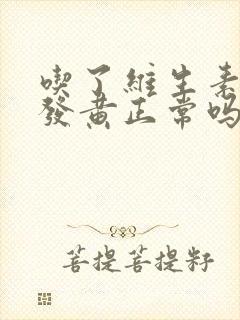 喫了維生素
發黄正常嗎
菩提菩提籽